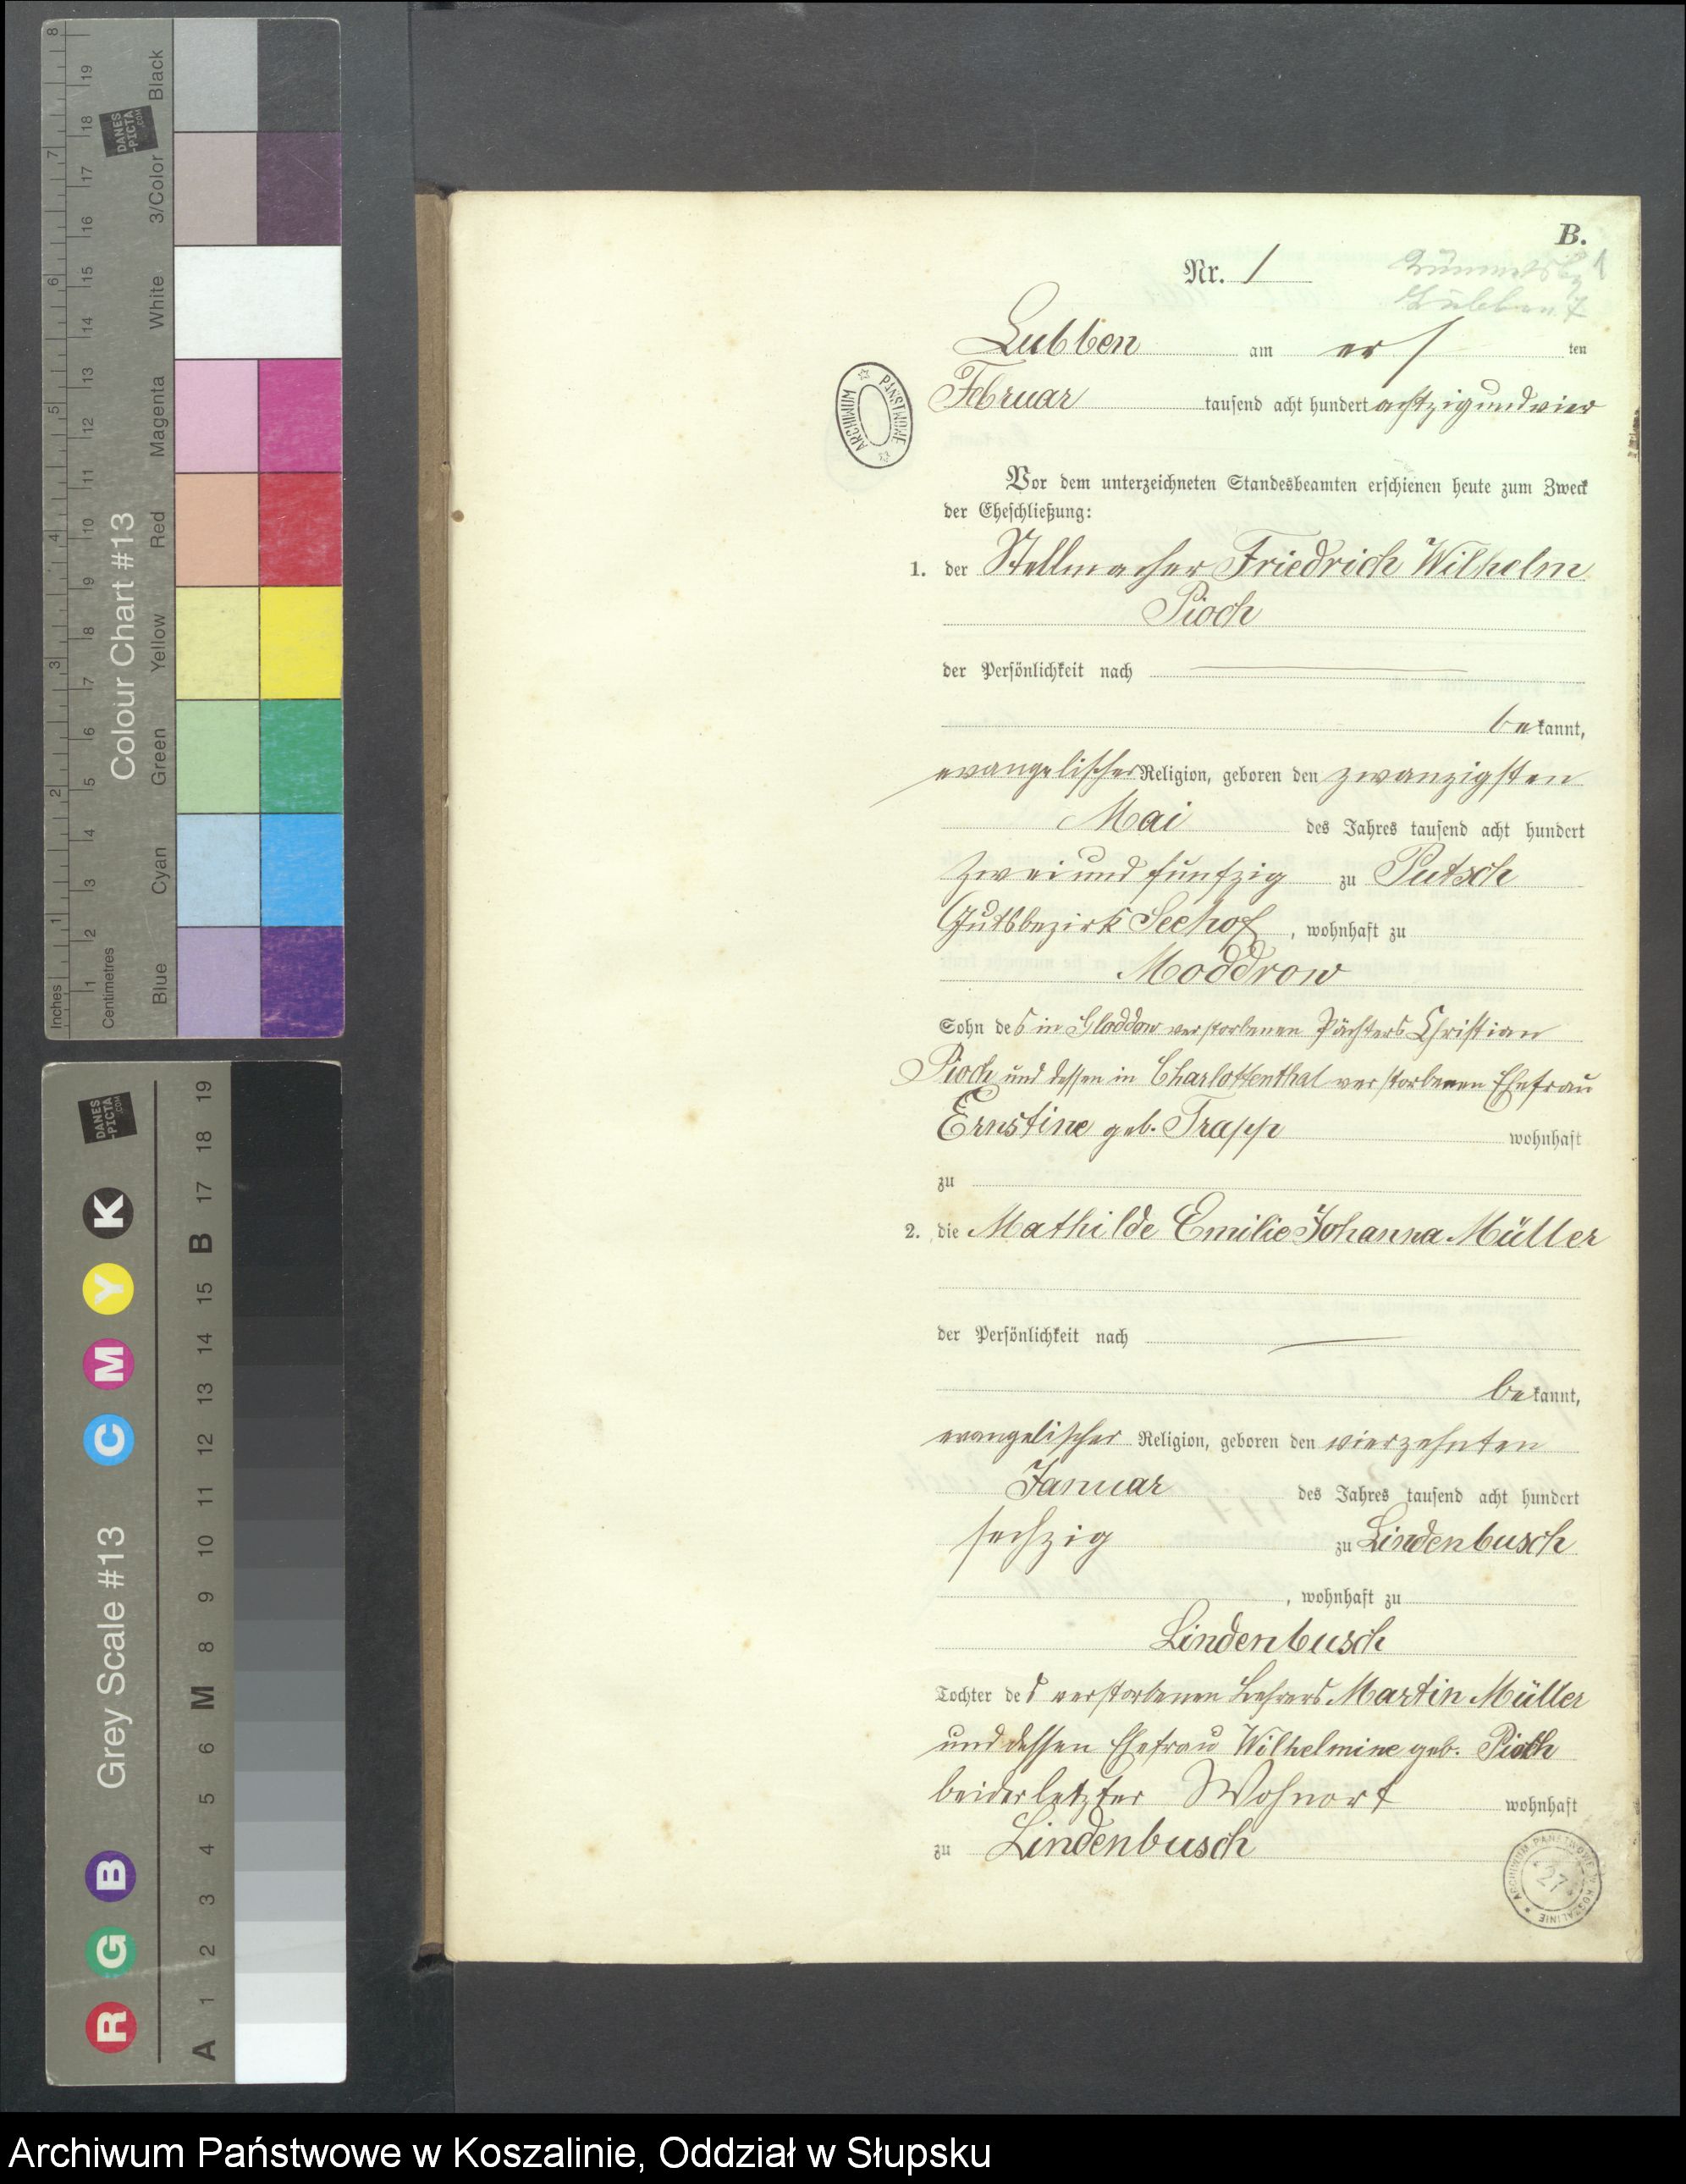 B.
Nr. 1
Lubben am ers ten
Februar tausend acht hundert achtzig und vier
Vor dem unterzeichneten Standesbeamten erschienen heute zum Zweck
der Eheschließung:
1. der Stellmacher Friedrich Wilhelm
Pioch
der Persönlichkeit nach
bekannt,
evangelischer Religion, geboren den zwanzigsten
Mai des Jahres tausend acht hundert
zwei und fünfzig zu Putsch
Gutsbezirk Seehof, wohnhaft zu
Moddrow
Sohn des in Gloddow verstorbenen Pächters Christian
Pioch und dessen in Charlottenthal verstorbenen Ehefrau
Ernstine geb. Trapp wohnhaft
zu
2. die Mathilde Emilie Johanna Müller
der Persönlichkeit nach
bekannt,
evangelischer Religion, geboren den vierzehnten
Januar des Jahres tausend acht hundert
sechzig zu Lindenbusch
, wohnhaft zu
Lindenbusch
Tochter des verstorbenen Lehrers Martin Müller
und dessen Ehefrau Wilhelmine geb. Pioch
beider letzter Wohnort wohnhaft
zu Lindenbusch
ARCHIWUM PAŃSTWOWE
ARCHIWUM PAŃSTWOWE W KOSZALINIE
27
Inches 1 2 3 4 5 6 7 8
Centimetres 1 2 3 4 5 6 7 8 9 10 11 12 13 14 15 16 17 18 19
Colour Chart #13
Blue Cyan Green Yellow Red Magenta White 3/Color Black
DANES-PICTA.COM
Grey Scale #13
R G B C M Y K
A 1 2 3 4 5 6 M 8 9 10 11 12 13 14 15 B 17 18 19
DANES-PICTA.COM
Archiwum Państwowe w Koszalinie, Oddział w Słupsku